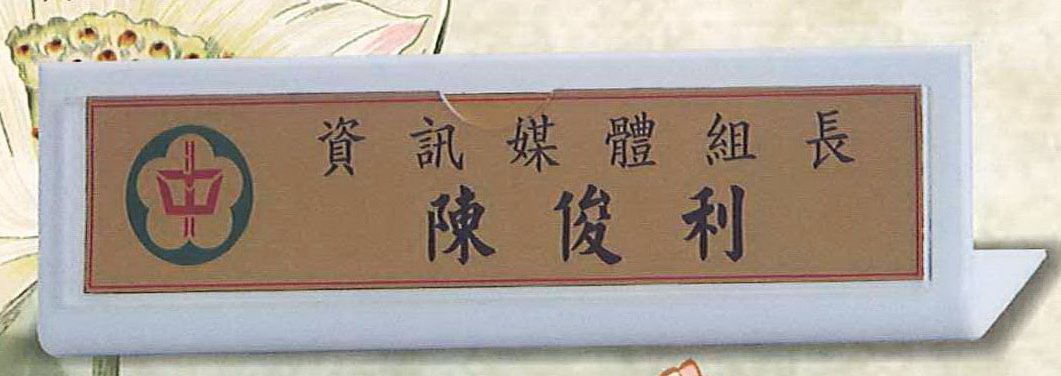 資訊媒體組長
陳俊利